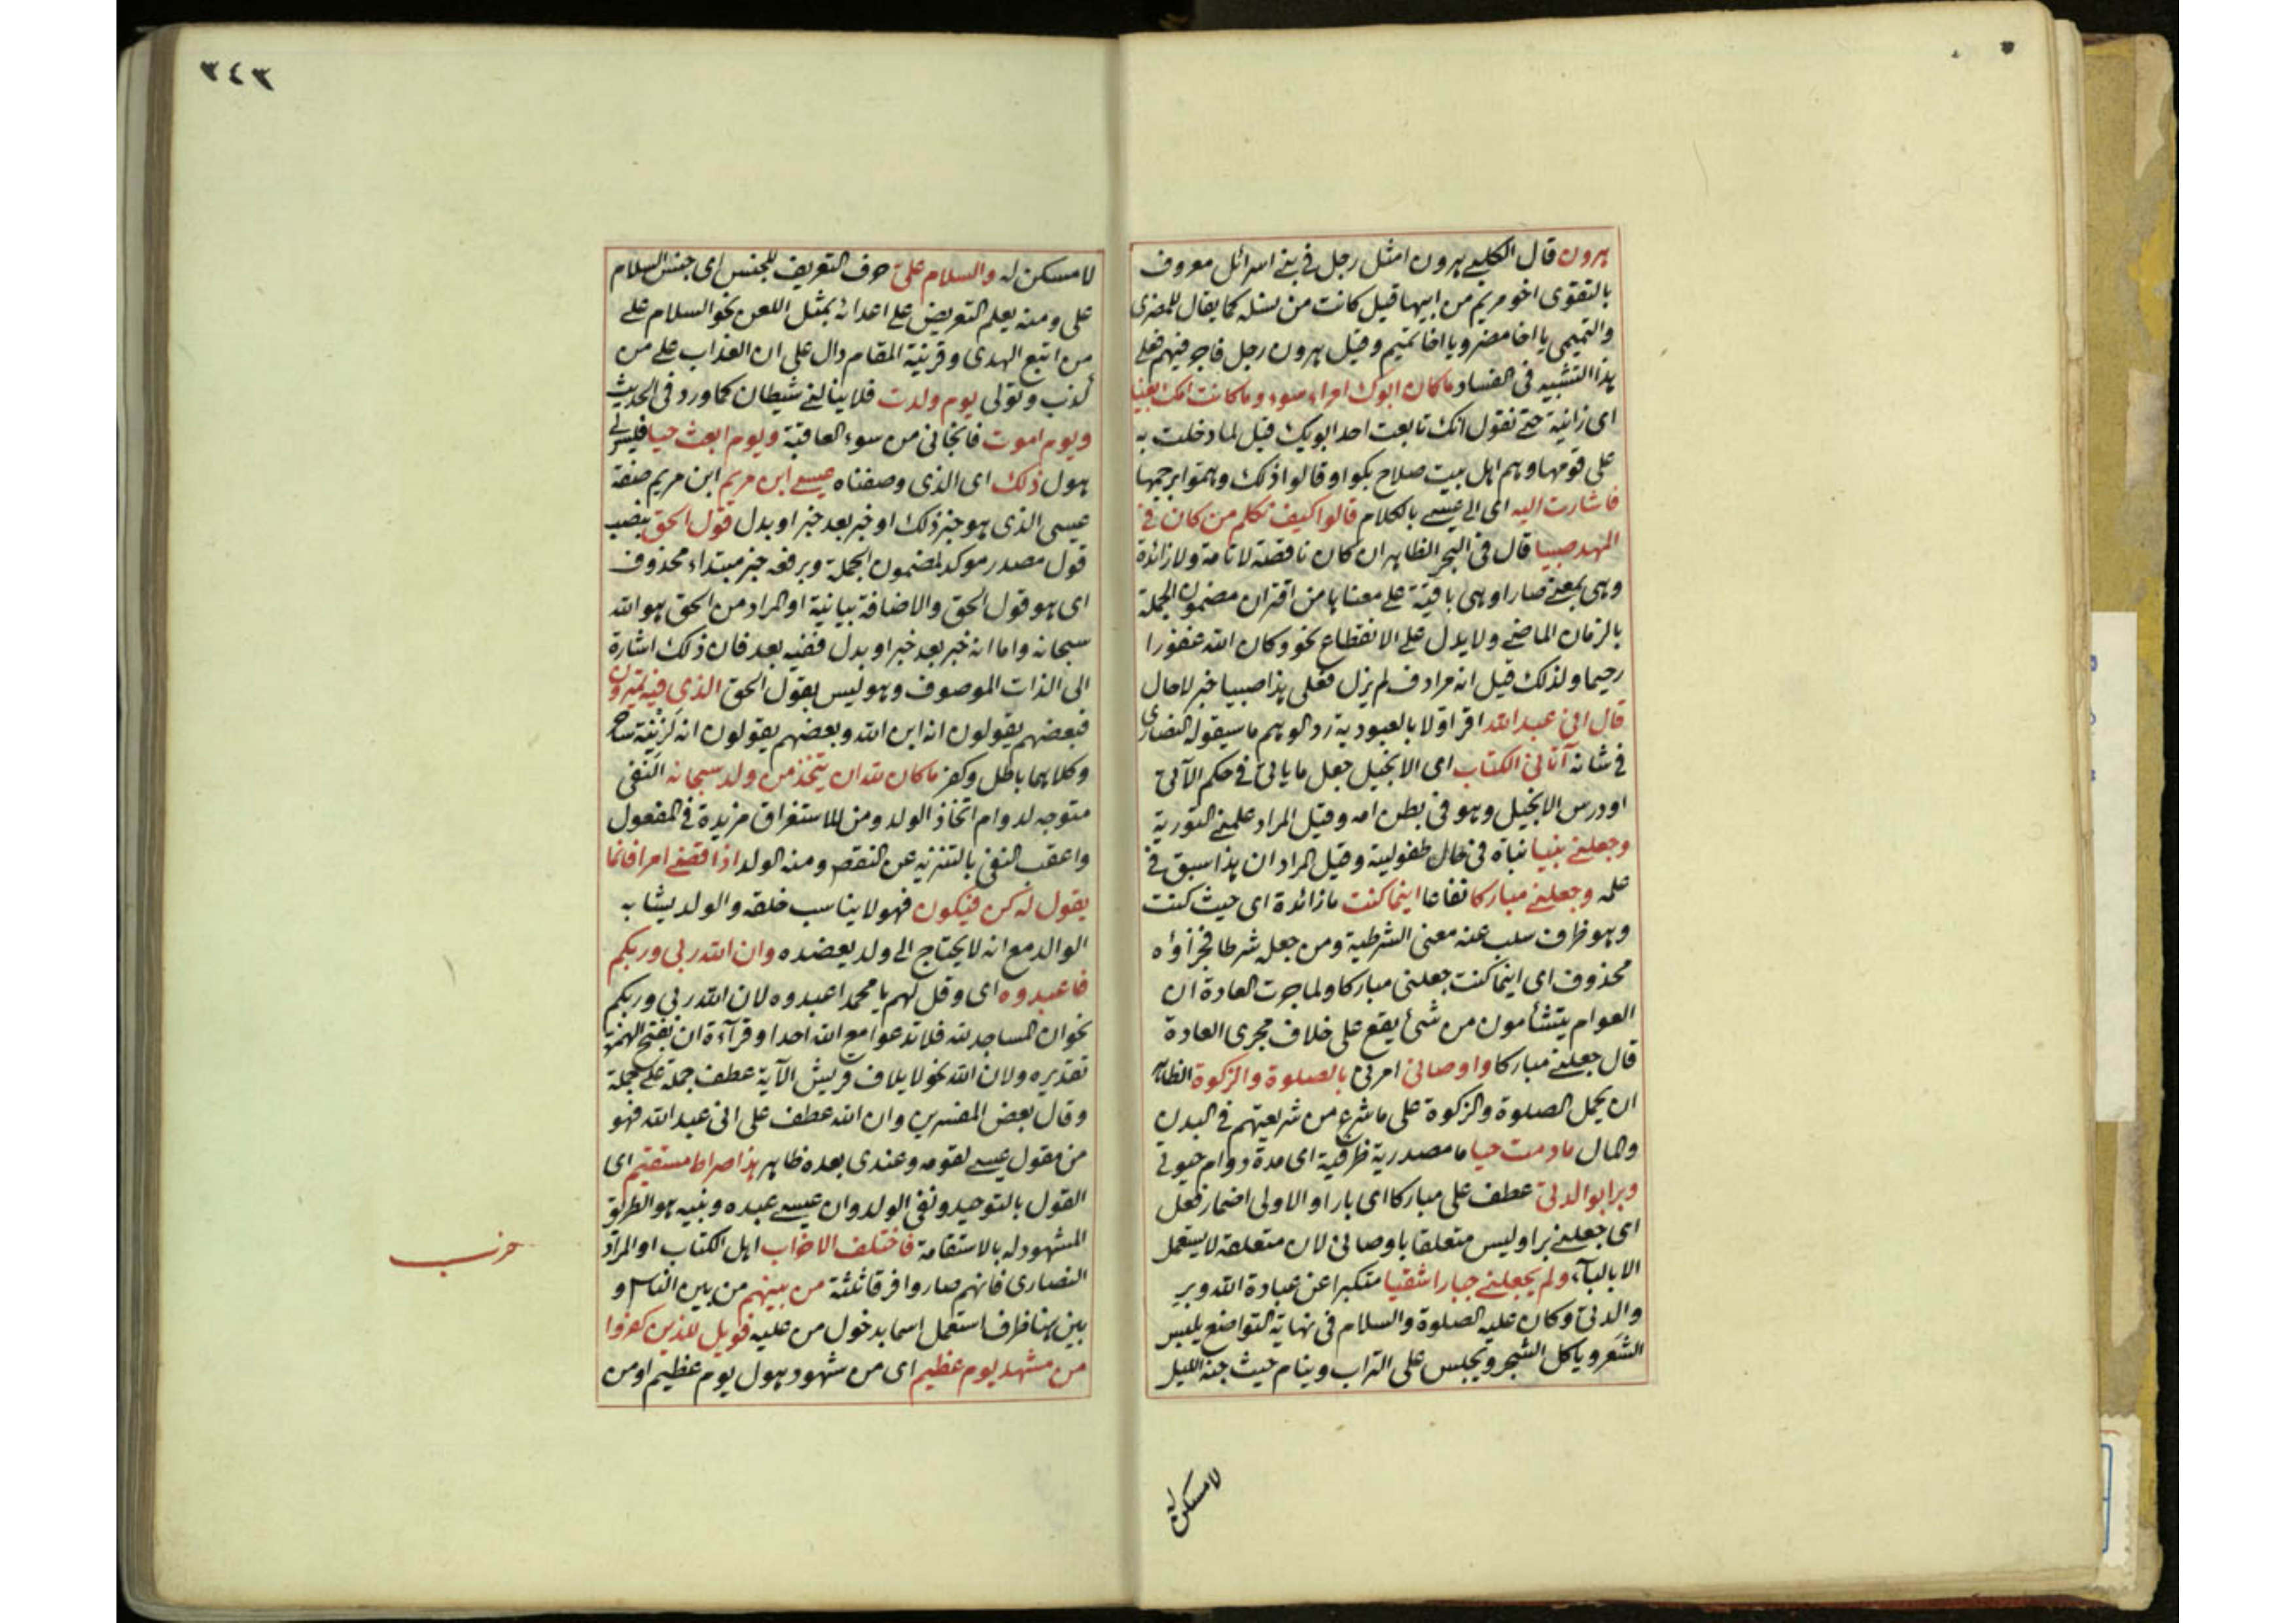 هرون قال الكلبي هرون امثل رجل في بني اسرائل معروف
بالتقوى اخو مريم من ابيها قيل كانت من نسله كما يقال للمضرى
والتميمي يا اخا مضر ويا اخا تميم وقيل هرون رجل فاجر فيهم فعلى
هذا التشبيه فى الفساد ما كان ابوك امراء سوء وما كانت امك بغيا
اى زانية حتى نقول انك تابعت احد ابويك قيل لما دخلت به
على قومها وهم اهل بيت صلاح بكوا وقالوا ذلك وهموا برجمها
فاشارت اليه اى الى عيسى بالكلام قالوا كيف نكلم من كان فى
المهد صبيا قال فى البحر الظاهر ان كان ناقصة لا تامة ولا زائدة
وهى بمعنى صار او هى باقية على معناها من اقتران مضمون الجملة
بالزمان الماضى ولا يدل على الانقطاع نحو وكان الله غفورا
رحيما ولذلك قيل انه مرادف لم يزل فعلى هذا صبيا خبر لا حال
قال انى عبد الله اقر اولا بالعبودية رد الوهم ما سيقوله النصارى
فى شانه آتانى الكتاب اى الانجيل جعل ما ياتى فى حكم الآتى
او درس الانجيل وهو فى بطن امه وقيل المراد علمنى التورية
وجعلنى نبيا نباه فى حال طفوليته وقيل المراد ان هذا سبق فى
علمه وجعلنى مباركا نفاعا اينما كنت ما زائدة اى حيث كنت
وهو ظرف سلب عنه معنى الشرطية ومن جعله شرطا فجزاؤه
محذوف اى اينما كنت جعلنى مباركا ولما جرت العادة ان
العوام يتشأمون من شئ يقع على خلاف مجرى العادة
قال جعلنى مباركا واوصانى امرنى بالصلوة والزكوة الظاهر
ان يحمل الصلوة والزكوة على ما شرع من شريعتهم فى البدن
والمال ما دمت حيا ما مصدرية ظرفية اى مدة دوام حيوتى
وبرا بوالدتى عطف على مباركا اى بارا والاولى اضمار فعل
اى جعلنى برا وليس متعلقا باوصانى لان متعلقه لا يستعمل
الا بالبآء ولم يجعلنى جبارا شقيا متكبرا عن عبادة الله وبر
والدتى وكان عليه الصلوة والسلام فى نهاية التواضع يلبس
الشعر وياكل الشجر ويجلس على التراب وينام حيث جنه الليل
لا مسكن له
٣٤٣
لا مسكن له والسلام على حرف التعريف للجنس اى جنس السلام
على ومنه يعلم التعريض على اعدائه بمثل اللعن نحو السلام على
من اتبع الهدى وقرينة المقام دال على ان العذاب على من
كذب وتولى يوم ولدت فلا ينالنى شيطان كما ورد فى الحديث
ويوم اموت فانجانى من سوء العاقبة ويوم ابعث حيا فليس لى
هول ذلك اى الذى وصفناه عيسى ابن مريم ابن مريم صفة
عيسى الذى هو خبر ذلك او خبر بعد خبر او بدل قول الحق بنصب
قول مصدر موكد لمضمون الجملة وبرفعه خبر مبتداء محذوف
اى هو قول الحق والاضافة بيانية او المراد من الحق هو الله
سبحانه واما انه خبر بعد خبر او بدل ففيه بعد فان ذلك اشارة
الى الذات الموصوف وهو ليس بقول الحق الذى فيه يمترون
فبعضهم يقولون انه ابن الله وبعضهم يقولون انه لزنية ساحر
وكلاهما باطل وكفر ما كان لله ان يتخذ من ولد سبحانه النفى
متوجه لدوام اتخاذ الولد ومن للاستغراق مزيدة فى المفعول
واعقب النفى بالتنزيه عن النقص ومنه الولد اذا قضى امرا فانما
يقول له كن فيكون فهو لا يناسب خلقه والولد يشابه
الوالد مع انه لا يحتاج الى ولد يعضده وان الله ربى وربكم
فاعبدوه اى وقل لهم يا محمد اعبدوه لان الله ربى وربكم
نحو ان المساجد لله فلا تدعوا مع الله احدا وقرآءة ان بفتح الهمزة
تقديره ولان الله نحو لايلاف قريش الآية عطف جملة على جملة
وقال بعض المفسرين وان الله عطف على انى عبد الله فهو
من مقول عيسى لقومه وعندى بعده ظاهر هذا صراط مستقيم اى
القول بالتوحيد ونفى الولد وان عيسى عبده ونبيه هو الطريق
المشهود له بالاستقامة فاختلف الاحزاب اهل الكتاب او المراد
النصارى فانهم صاروا فرقا ثلثة من بينهم من بين الناس و
بين هنا ظرف استعمل اسما بدخول من عليه فويل للذين كفروا
من مشهد يوم عظيم اى من شهود هول يوم عظيم او من
حزب